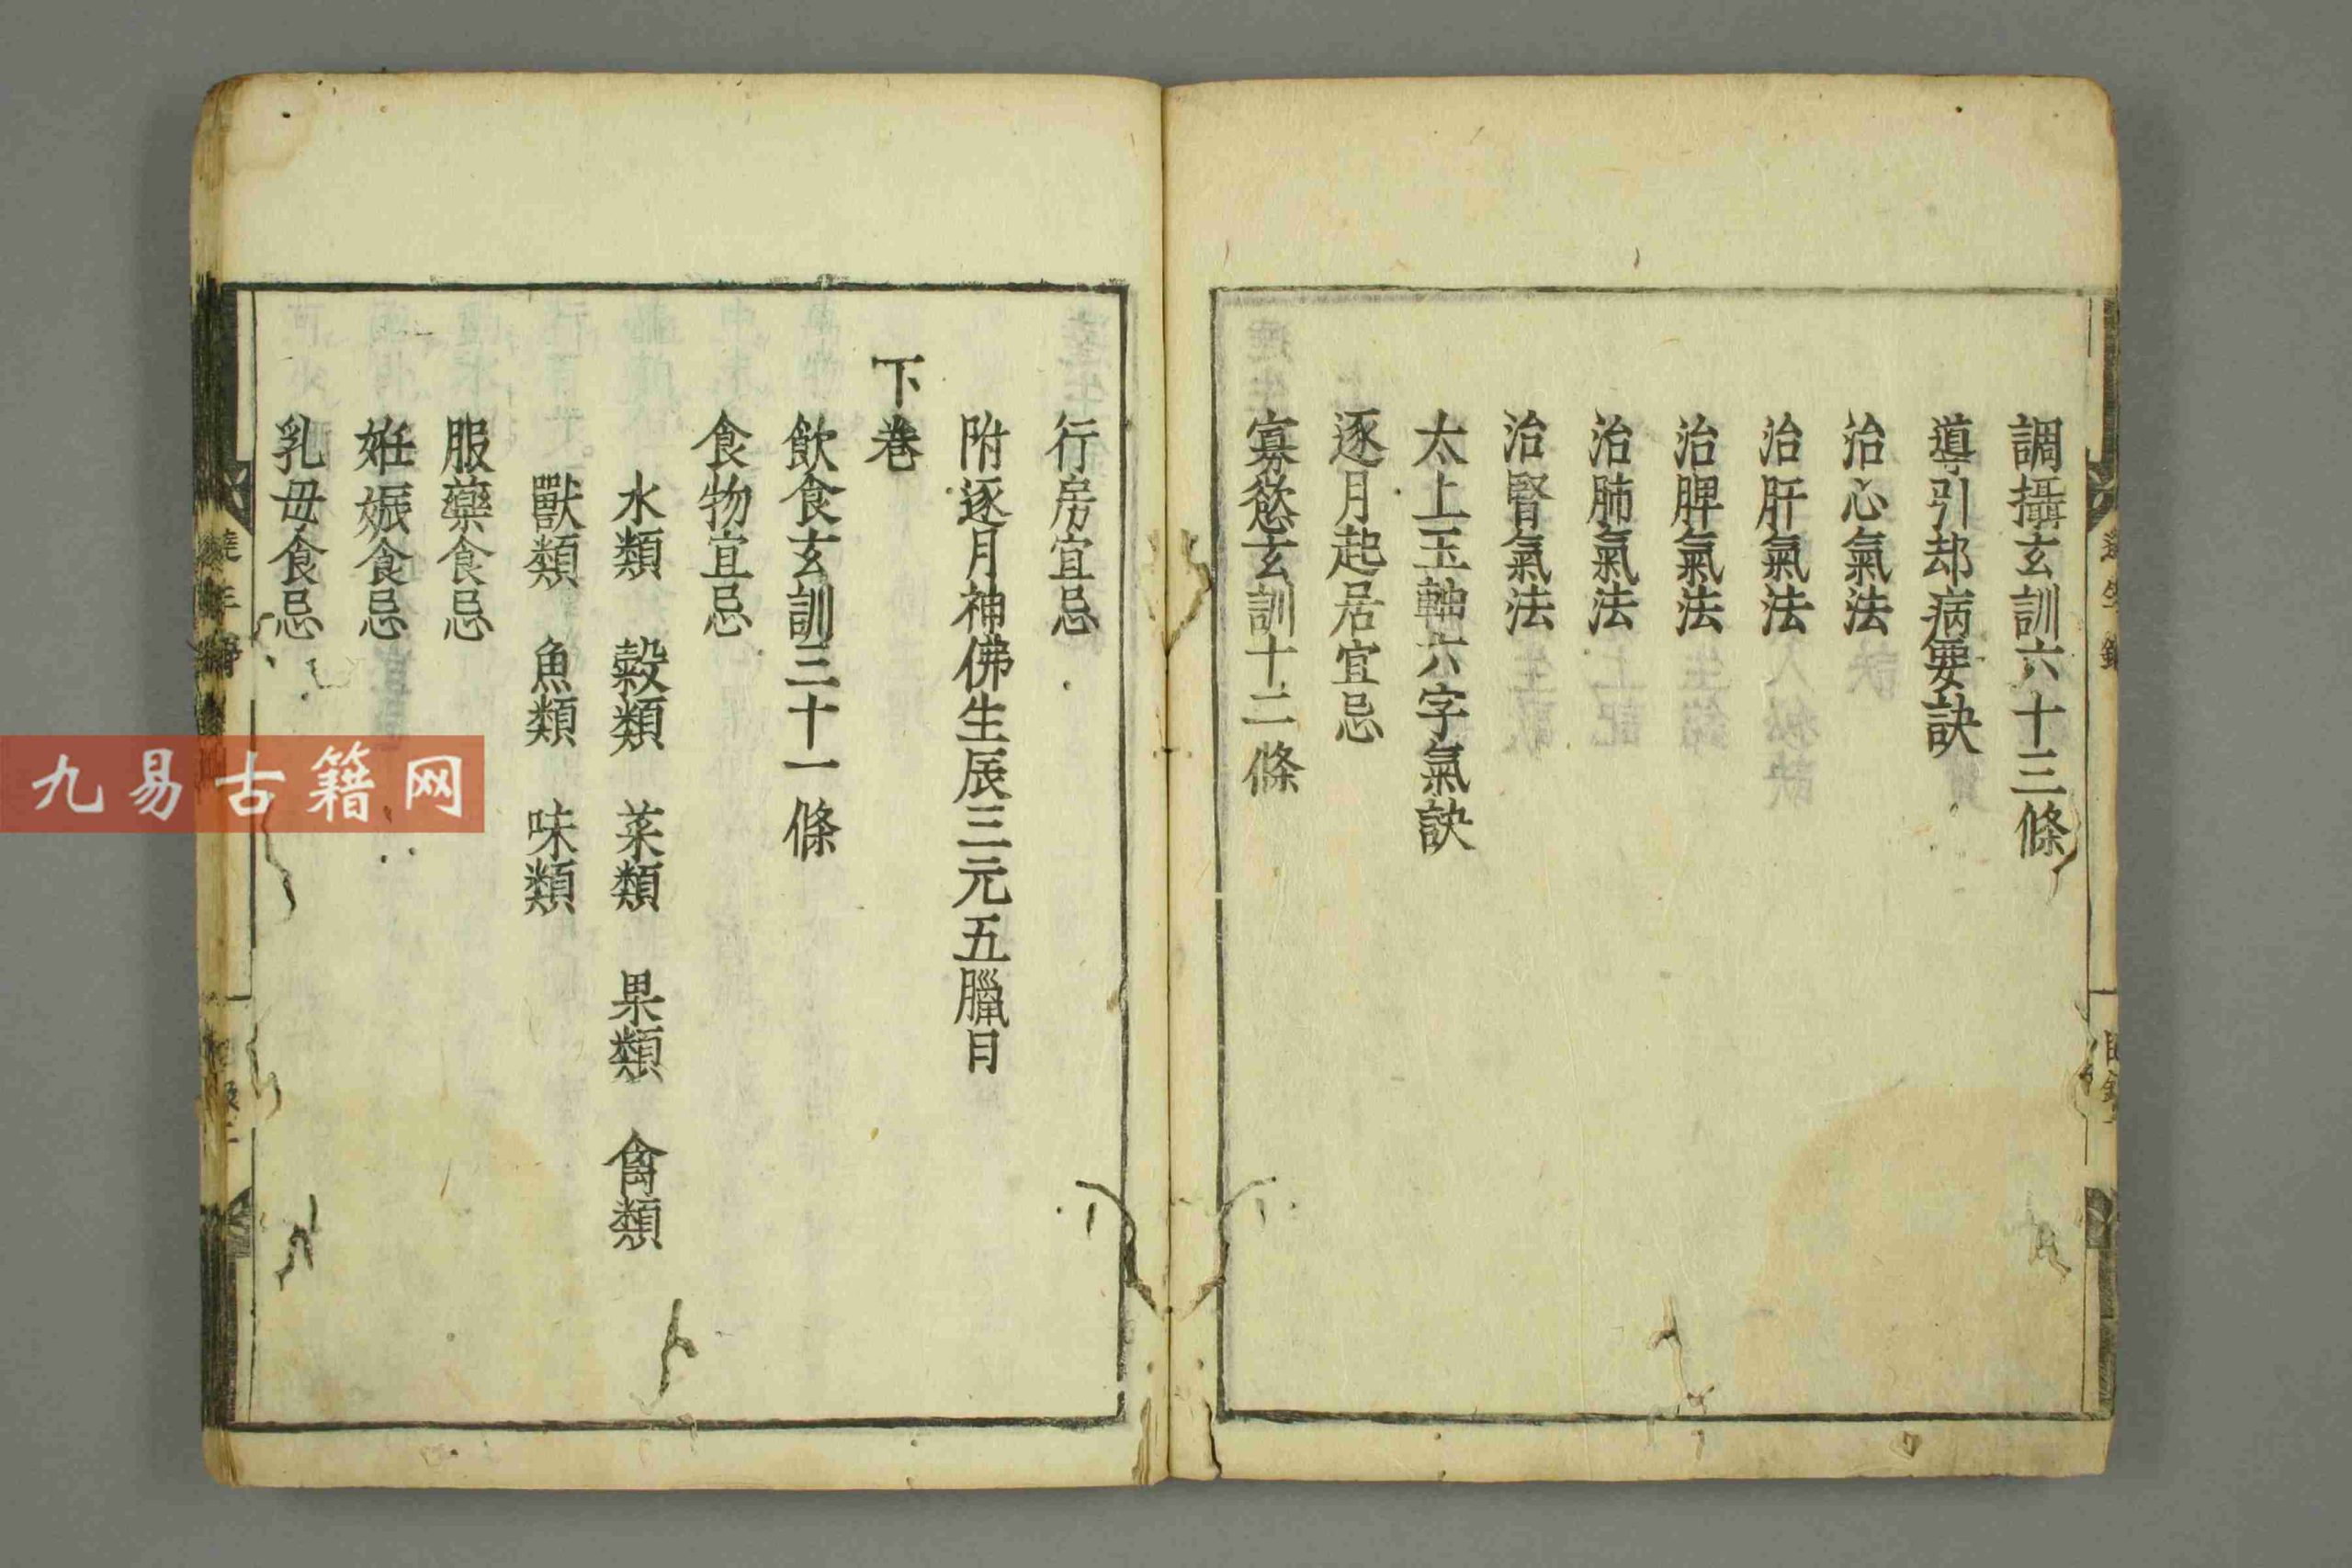 調攝玄訓六十三條
導引却病要訣
治心氣法
治肝氣法
治脾氣法
治肺氣法
治腎氣法
太上玉軸六字氣訣
逐月起居宜忌
寡慾玄訓十二條
行房宜忌
附逐月神佛生辰三元五臘日
下卷
飲食玄訓三十一條
食物宜忌
水類 穀類 菜類 果類 禽類
獸類 魚類 味類
服藥食忌
妊娠食忌
乳毋食忌
九易古籍网